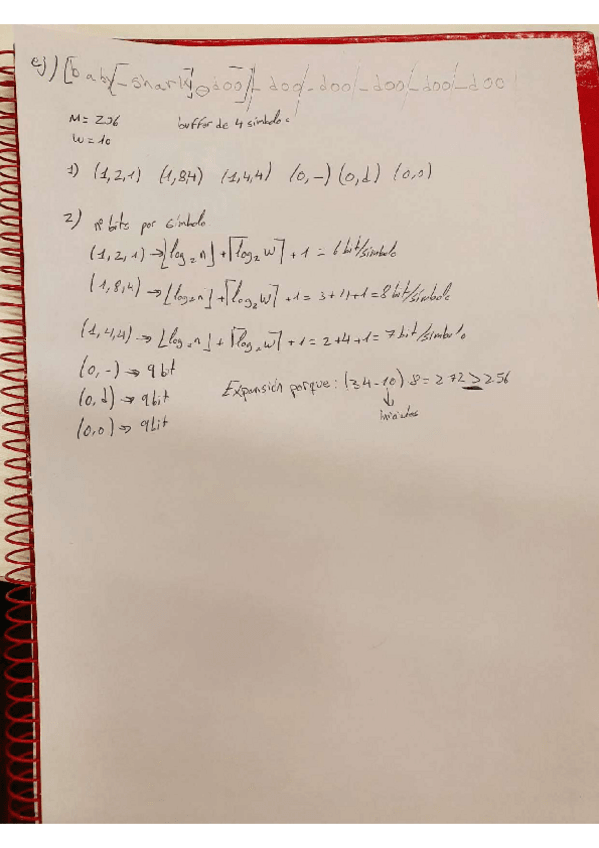 ej) [bab[-shark]-doo]-doo-doo-doo-doo-doo
M= 256 buffer de 4 símbolos
W=10
1) (1,2,1) (1,8,4) (1,4,4) (0,-) (0,d) (0,o)
2) nº bits por símbolo
(1,2,1) → ⌊log₂ n⌋ + ⌈log₂ W⌉ + 1 = 6 bit/símbolo
(1,8,4) → ⌊log₂ n⌋ + ⌈log₂ W⌉ + 1 = 3+4+1 = 8 bit/símbolo
(1,4,4) → ⌊log₂ n⌋ + ⌈log₂ W⌉ + 1 = 2+4+1 = 7 bit/símbolo
(0,-) → 9 bit
(0,d) → 9 bit Expansión porque: (34-10) 8 = 272 > 256
(0,o) → 9 bit iniciales